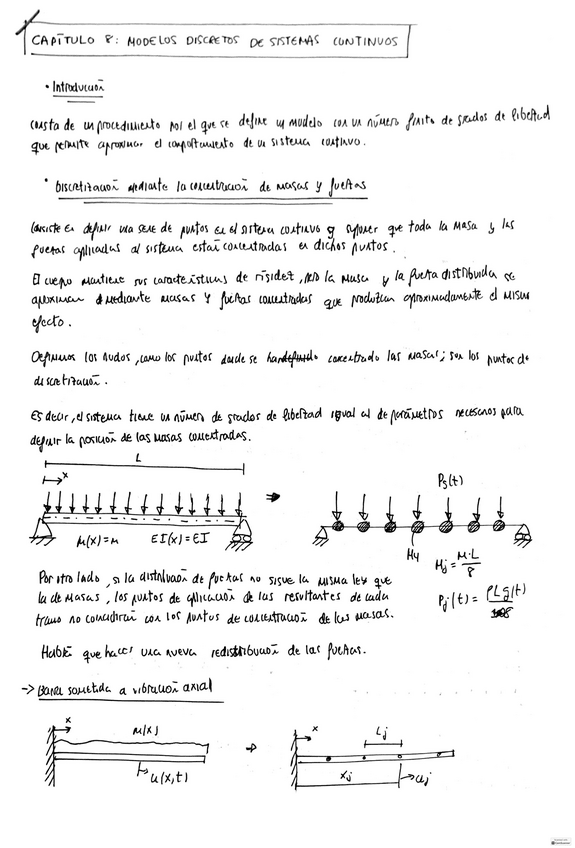 CAPÍTULO 8: MODELOS DISCRETOS DE SISTEMAS CONTINUOS
• Introducción
consta de un procedimiento por el que se define un modelo con un número finito de grados de libertad
que permite aproximar el comportamiento de un sistema continuo.
• Discretización mediante la concentración de masas y fuerzas
Consiste en definir una serie de puntos en el sistema continuo y suponer que toda la masa y las
fuerzas aplicadas al sistema están concentradas en dichos puntos.
El cuerpo mantiene sus características de rigidez, pero la masa y la fuerza distribuida se
aproximan mediante masas y fuerzas concentradas que produzcan aproximadamente el mismo
efecto.
Definimos los nudos, como los puntos donde se han concentrado las masas; son los puntos de
discretización.
Es decir, el sistema tiene un número de grados de libertad igual al de parámetros necesarios para
definir la posición de las masas concentradas.
L
x
P5(t)
μ(x)=μ EI(x)=EI
M4
Mj = μ·L/8
Pj(t) = ρLg(t)/8
Por otro lado, si la distribución de fuerzas no sigue la misma ley que
la de masas, los puntos de aplicación de las resultantes de cada
tramo no coincidirán con los puntos de concentración de las masas.
Habrá que hacer una nueva redistribución de las fuerzas.
→ Barra sometida a vibración axial
x
μ(x)
u(x,t)
x
Lj
xj
uj